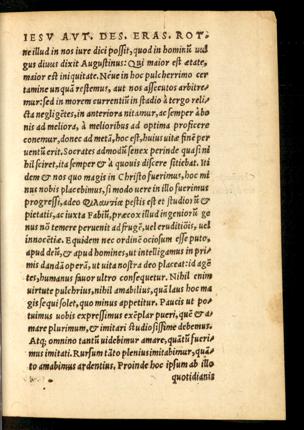 IESV AVT. DES. ERAS. ROT.
ne illud in nos iure dici possit, quod in hominũ uul
gus divus dixit Augustinus: Qui maior est ætate,
maior est iniquitate. Néue in hoc pulcherrimo cer
tamine unquã restemus, aut nos assecutos arbitre
mur: sed in morem currentiũ in stadio à tergo reli
cta negligẽtes, in anteriora nitamur, ac semper à bo
nis ad meliora, à melioribus ad optima proficere
conemur, donec ad metã, hoc est, huius uitæ finẽ per
uentũ erit. Socrates admodũ senex perinde quasi ni
hil sciret, ita semper & à quouis discere sitiebat. Iti
dem & nos quo magis in Christo fuerimus, hoc mi
nus nobis placebimus, si modo uere in illo fuerimus
progressi, adeo φιλαυτία pestis est et studiorũ &
pietatis, ac iuxta Fabiũ, præcox illud ingeniorũ ge
nus nõ temere peruenit ad frugẽ, uel eruditiõis, uel
innocẽtiæ. Equidem nec ordinẽ ociosum esse puto,
apud deũ, & apud homines, ut intelligamus in pri
mis dandã operã, ut uita nostra deo placeat: id agẽ
tes, humanus fauor ultro consequetur. Nihil enim
uirtute pulchrius, nihil amabilius, quã laus hoc ma
gis sequi solet, quo minus appetitur. Paucis ut po
tuimus uobis expressimus exẽplar pueri, quẽ & a
mare plurimum, & imitari studiosissime debemus.
Atq; omnino tantũ uidebimur amare, quãtũ fueri
mus imitati. Rursum tãto plenius imitabimur, quã
to amabimus ardentius. Proinde hoc ipsum ab illo
quotidianis